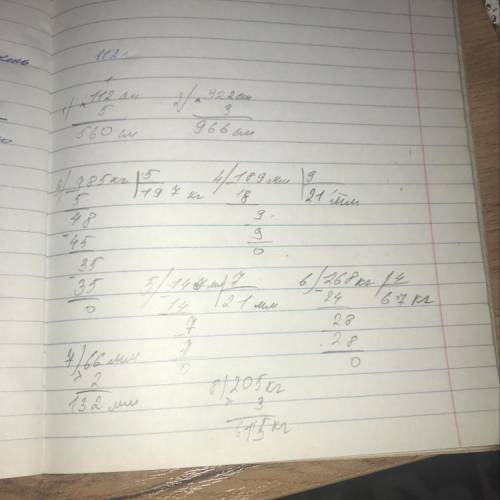 112
1) × 112 см 2) × 322 см
5 3
560 см 966 см
3) 985 кг | 5 4) 189 мм | 9
5 197 кг 18 21 мм
48 9
45 9
35 0
35
0
5) 147 мм | 7 6) 268 кг | 4
14 21 мм 24 67 кг
7 28
7 28
0 0
7) 66 мм
× 2
132 мм
8) 205 кг
× 3
615 кг